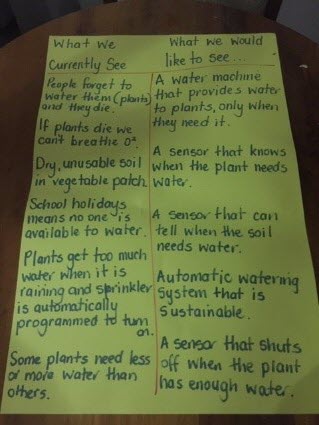 What We
Currently See
People forget to
water them (plants)
and they die.
If plants die we
can't breathe O².
Dry, unusable soil
in vegetable patch.
School holidays
means no one is
available to water.
Plants get too much
water when it is
raining and sprinkler
is automatically
programmed to turn
on.
Some plants need less
or more water than
others.
What we would
like to see...
A water machine
that provides water
to plants, only when
they need it.
A sensor that knows
when the plant needs
water.
A sensor that can
tell when the soil
needs water.
Automatic watering
system that is
sustainable.
A sensor that shuts
off when the plant
has enough water.